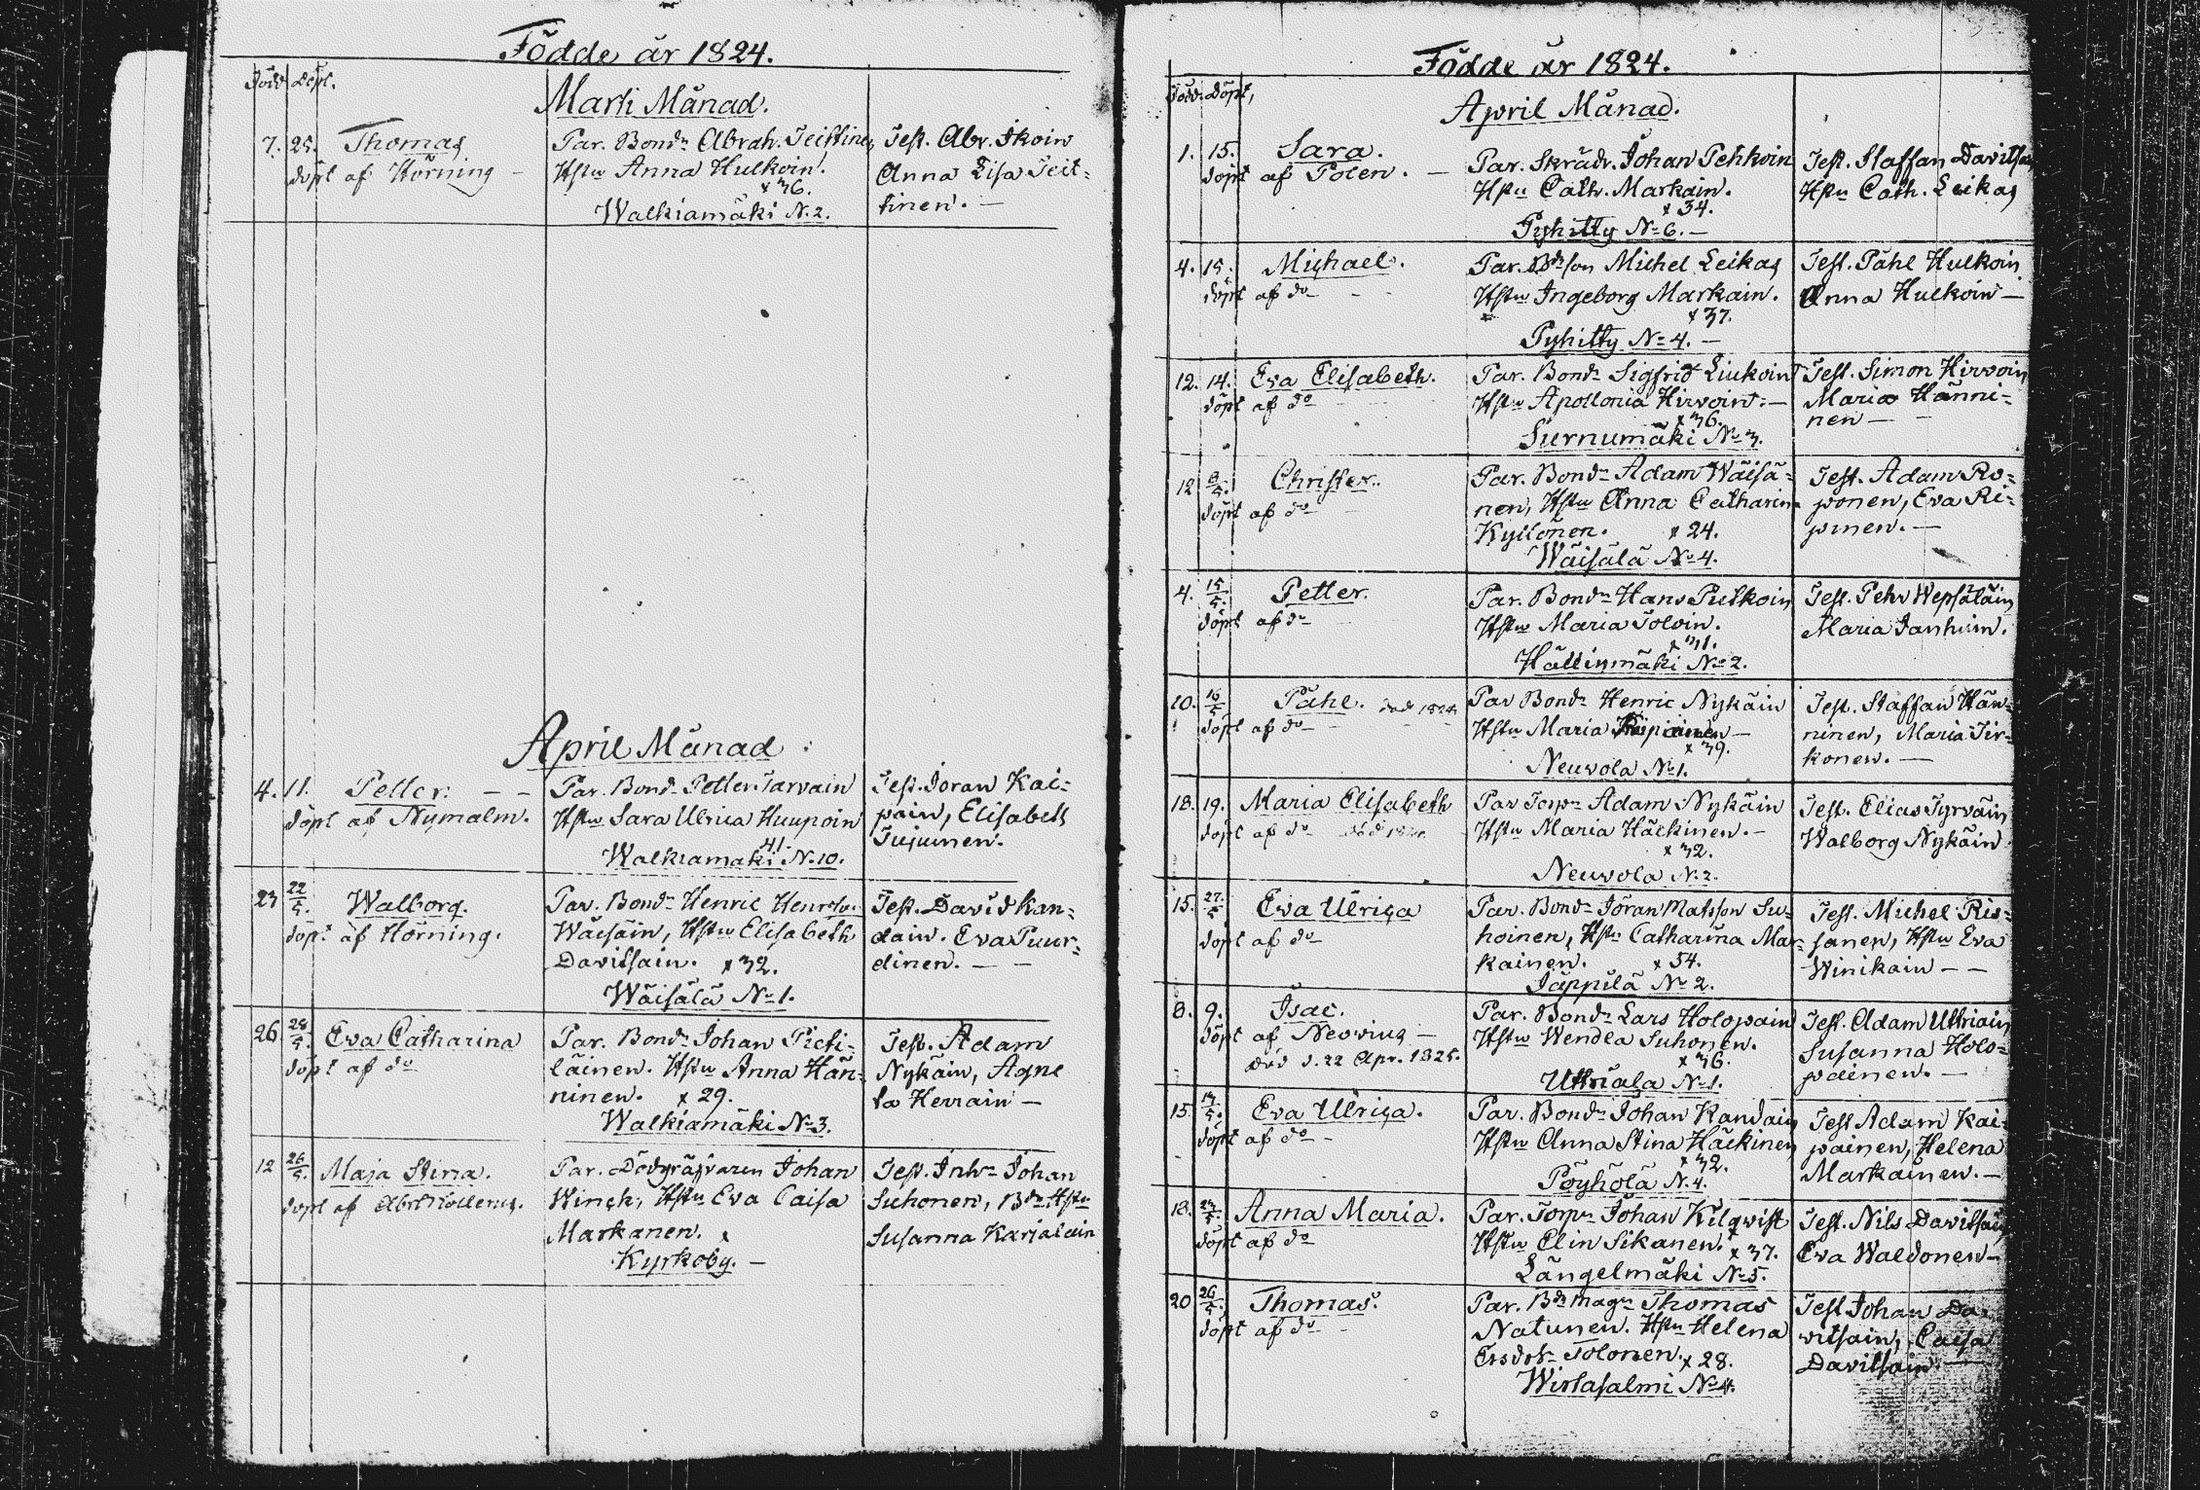 Födde år 1824.
Född Döpt.
Marti Månad.
7. 25. Thomas
döpt af Hörning
Par. Bond. Abrah. Teittinen
Hstu Anna Hulkoin.
x 36.
Walkiamäki N. 2.
Test. Abr. Ikoin
Anna Lisa Teit=
tinen. —
April Månad
4. 11. Petter. — —
döpt af Nymalm.
Par. Bond. Petter Tarvain
Hstu Sara Ulrica Huupoin
41.
Walkiamäki N. 10.
Test. Joran Kai=
pain, Elisabeth
23 22/5. Walborg.
döpt af Hörning.
Par. Bond. Henric Henrsson
Wäisäin, Hstu Elisabeth
Davitsain. x 32.
Wäisälä No 1.
Test. David Kan=
dain. Eva Puur=
dinen. — —
26 28/5. Eva Catharina
döpt af do
Par. Bond. Johan Pieti=
läinen. Hstu Anna Hän=
ninen. x 29.
Walkiamäki No 3.
Test. Adam
Nykäin, Agne
ta Herrain —
12 26/5. Maja Stina.
döpt af
Par. Dödgräfvaren Johan
Winck, Hstu Eva Caisa
Markanen. x
Kyrkoby. —
Test. Inhn Johan
Suhonen, Bdn Hstu
Susanna Karjalain
Födde år 1824.
Född. Döpt,
April Månad.
1. 15. Sara.
döpt af Polen. —
Par. Skrädr. Johan Pehkoin
Hstu Cath. Markain.
x 34.
Pyhitty No 6. —
Test. Staffan Davitsain
Hstu Cath. Leikas
4. 15. Michael.
döpt af do
Par. Bdeson Michel Leikas
Hstu Ingeborg Markain.
x 37.
Pyhitty No 4. —
Test. Påhl Hulkoin
Anna Hulkoin —
12. 14. Eva Elisabeth.
döpt af do
Par. Bond. Sigfrid Liukoin
Hstu Apollonia Hirvoin. —
x 36.
Surnumäki No 3.
Test. Simon Hirvoin
Maria Hänni=
nen —
12 9/5. Christer.
döpt af do
Par. Bond. Adam Wäisä=
nen, Hstu Anna Catharin
Kyllönen. x 24.
Wäisälä No 4.
Test. Adam Ro=
ponen, Eva Ri=
pinen. —
4. 15/5. Petter.
döpt af do
Par. Bond. Hans Pulkoin
Hstu Maria Tolvin.
Hällinmäki No 2.
Test. Pehr Wepsäläin
Maria Janhuin.
10. 16/5 Påhl. död 1824
döpt af do
Par Bond. Henric Nykäin
Hstu Maria
x 39.
Neuvola No 1.
Test. Staffan Hän=
ninen, Maria Tir=
konen. —
18. 19. Maria Elisabeth
döpt af do
Par Torpr Adam Nykäin
Hstu Maria Häckinen. —
x 32.
Neuvola N. 2.
Test. Elias Tyrväin
Walborg Nykäin
15. 27/5 Eva Ulrica
döpt af do
Par. Bond. Jöran Matsson Su=
hoinen, Hstu Catharina Mar=
kainen. x 34.
Jäppilä No 2.
Test. Michel Ris=
sanen, Hstu Eva
Winikain — —
8. 9. Isac.
döpt af Neovius —
död d. 22 Apr. 1825.
Par. Bond. Lars Holopain
Hstu Wendla Suhonen.
x 36.
Uttriala No 1.
Test. Adam Uttriain
Susanna Holo=
painen. —
15 14/5. Eva Ulrica.
döpt af do
Par. Bond. Johan Kandain
Hstu Anna Stina Häckinen
x 32.
Pöyhölä N. 4.
Test Adam Kai=
painen, Helena
Markainen. —
18. 24/5. Anna Maria.
döpt af do
Par. Torpr Johan Kilqwist
Hstu Elin Sikanen. x 37.
Längelmäki No 5.
Test. Nils Davitsain
Eva Waldonen —
20 26/5. Thomas.
döpt af do
Par. Bde mågn Thomas
Natunen. Hstu Helena
Tolonen. x 28.
Wirtasalmi No 4.
Test Johan Da=
vitsain, Caisa
Davitsain. —